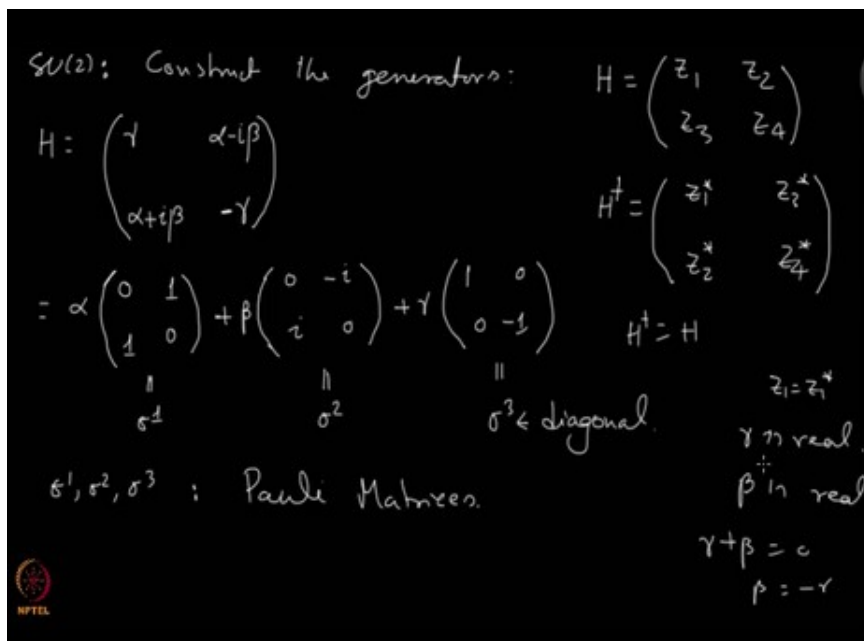 SU(2): Construct the generators:
H = ( γ α-iβ
α+iβ -γ )
= α ( 0 1
1 0 ) + β ( 0 -i
i 0 ) + γ ( 1 0
0 -1 )
|| || ||
σ¹ σ² σ³ ← diagonal.
σ¹, σ², σ³ : Pauli Matrices.
H = ( z₁ z₂
z₃ z₄ )
H† = ( z₁* z₂*
z₂* z₄* )
H† = H
z₁ = z₁*
γ is real.
β is real
γ+β = 0
β = -γ
NPTEL